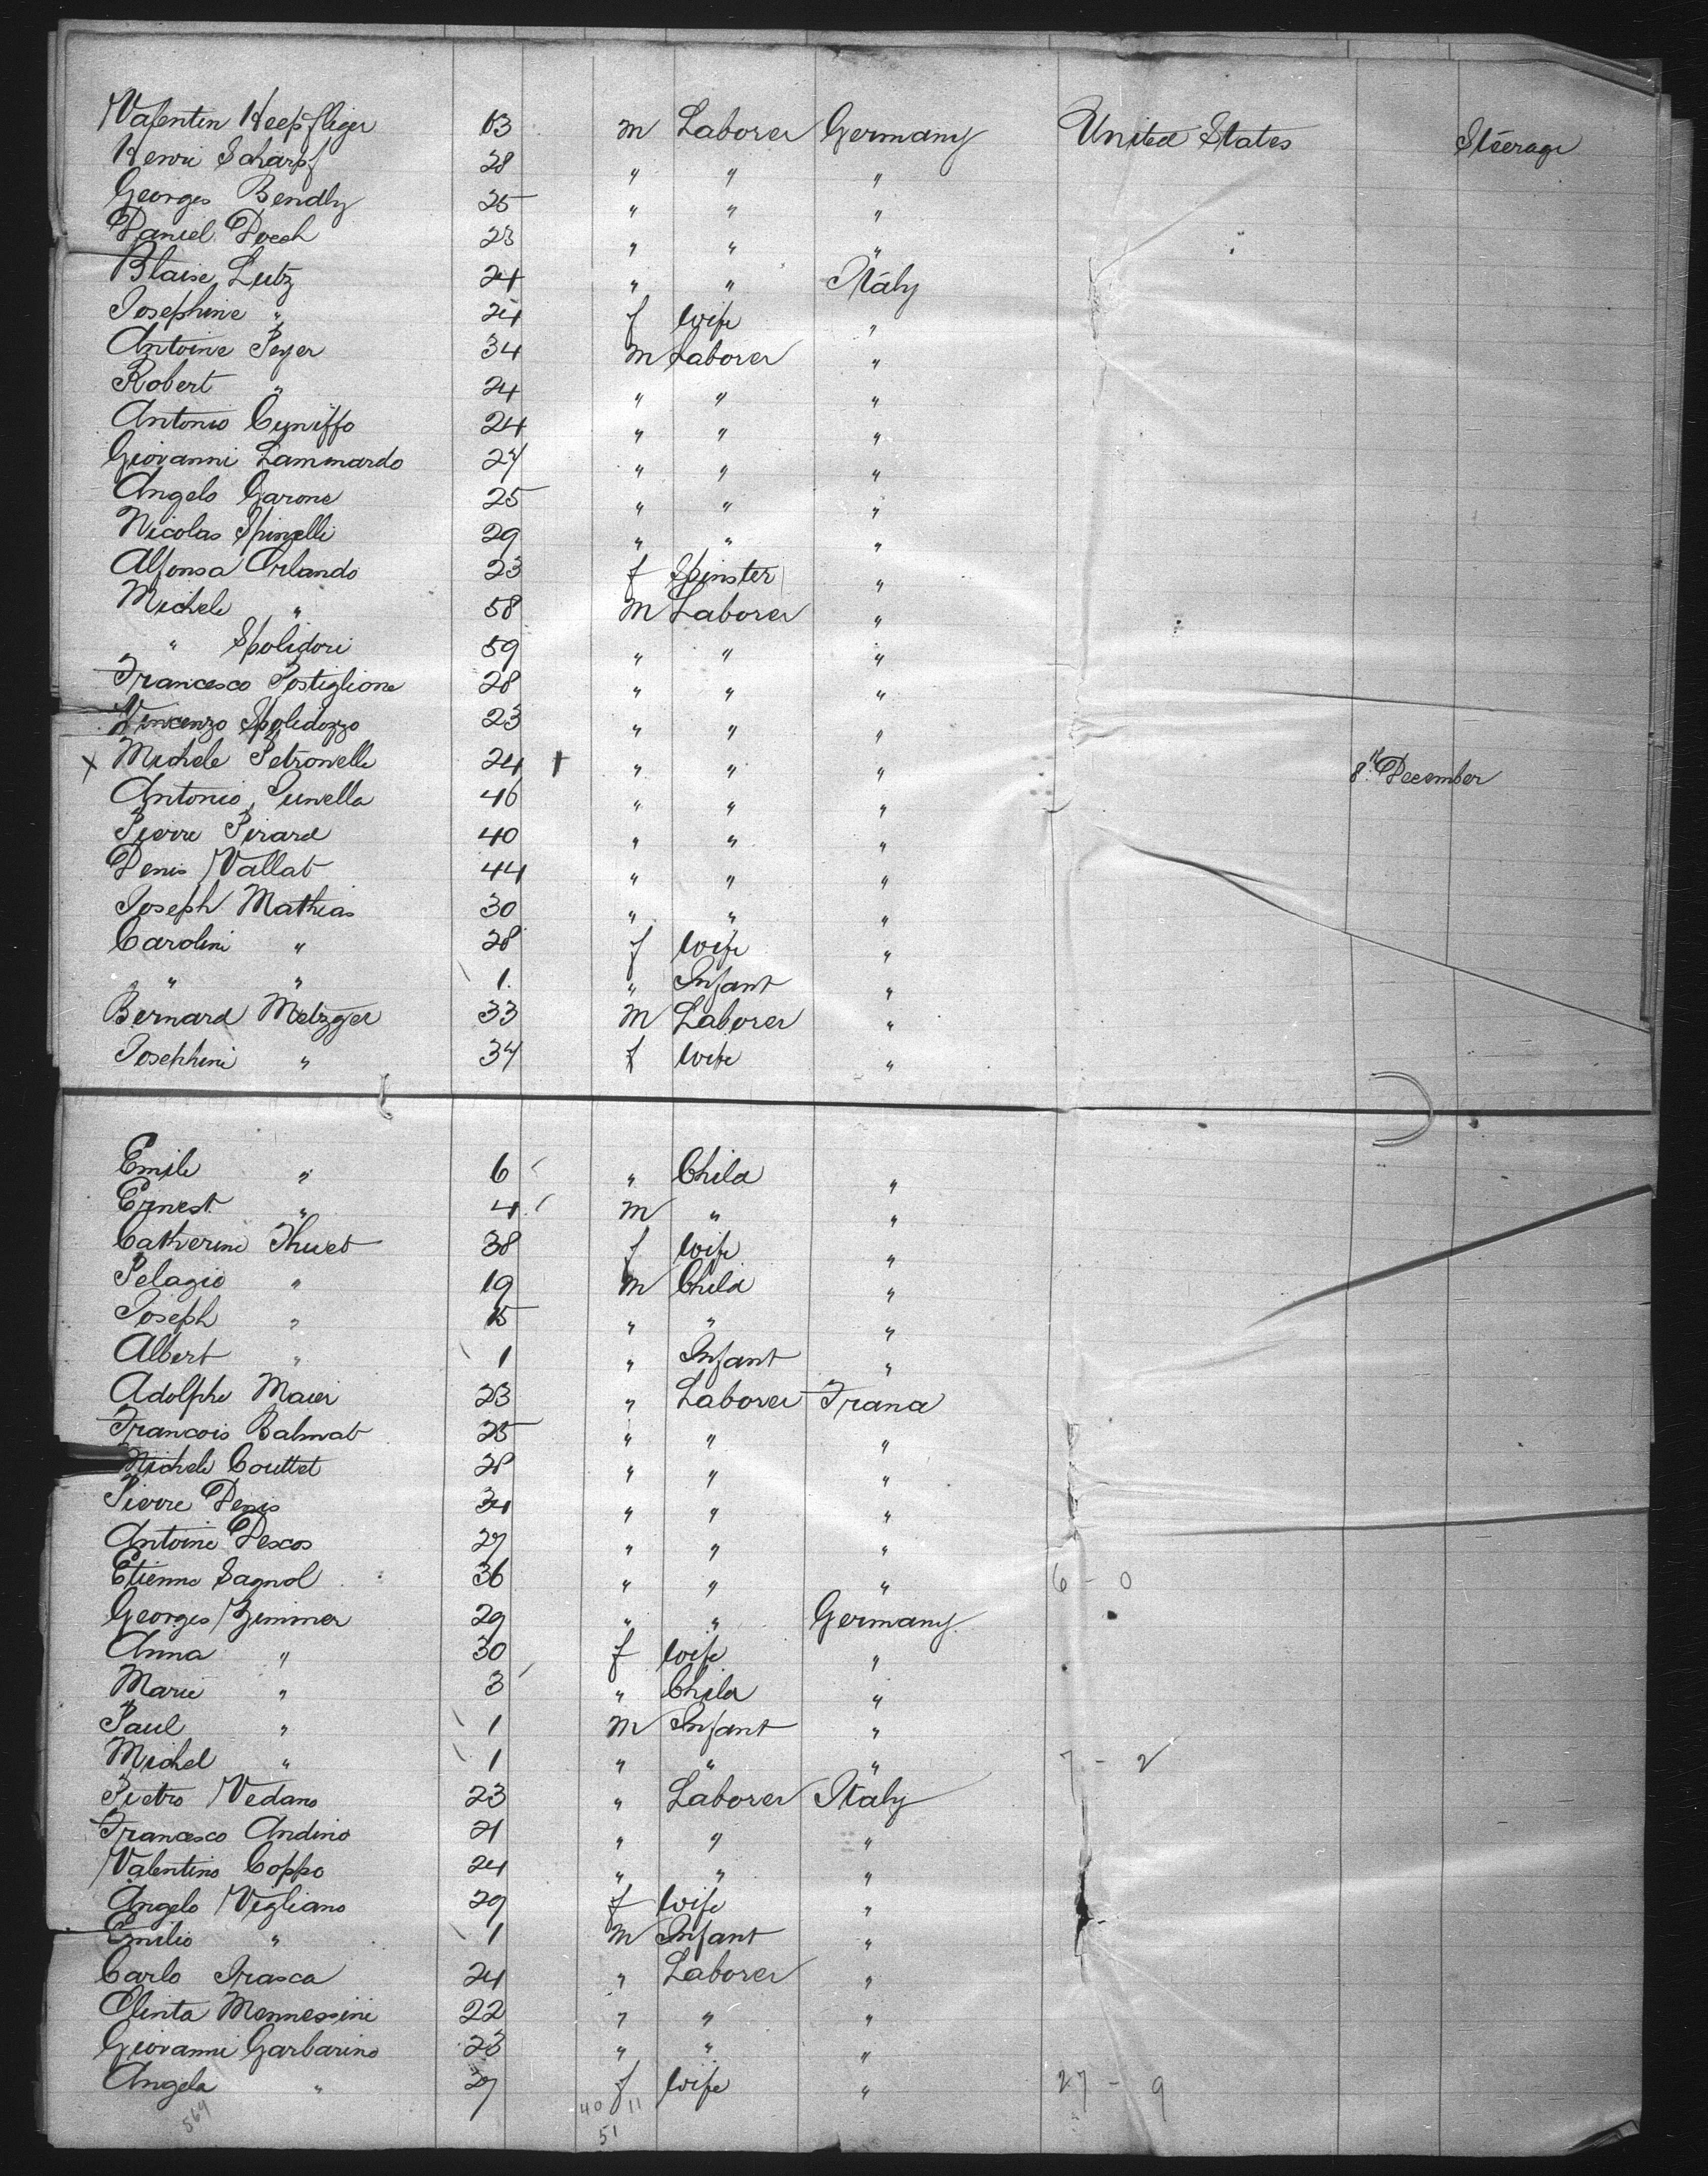 Valentin Heepfliger 63 m Laborer Germany United States Steerage
Henri Scharpf 28 " " "
Georges Bendly 25 " " "
Daniel Doech 23 " " "
Blaise Lutz 24 " " Italy
Josephine " 24 f Wife "
Antoine Peyer 34 m Laborer "
Robert " 24 " " "
Antonio Cuniffo 24 " " "
Giovanni Lammardo 27 " " "
Angelo Garone 25 " " "
Nicolas Spinelli 29 " " "
Alfonsa Orlando 23 f Spinster "
Michele " 58 m Laborer "
" Spolidori 59 " " "
Francesco Postiglione 28 " " "
Vincenzo Spolidozzo 23 " " "
x Michele Petronelle 24 " " " 8th December
Antonio Punella 46 " " "
Pierre Pirard 40 " " "
Denis Vallat 44 " " "
Joseph Mathias 30 " " "
Carolini " 28 f Wife "
" " 1 " Infant "
Bernard Metzger 33 m Laborer "
Josephini " 34 f Wife "
Emile " 6 " Child "
Ernest " 4 m " "
Catherine Thuet 38 f Wife "
Pelagio " 19 m Child "
Joseph " 15 " " "
Albert " 1 " Infant "
Adolphe Maier 23 " Laborer France
Francois Balmat 25 " " "
Michele Couttet 28 " " "
Pierre Denis 34 " " "
Antoine Descos 27 " " "
Etienne Sagnol 36 " " " 6 - 0
Georges Zimmer 29 " " Germany
Anna " 30 f Wife "
Marie " 3 " Child "
Paul " 1 m Infant "
Michel " 1 " " " 7 - 2
Pietro Vedano 23 " Laborer Italy
Francesco Andino 21 " " "
Valentino Coppo 24 " " "
Angelo Vigliano 29 f Wife "
Emilio " 1 m Infant "
Carlo Frasca 24 " Laborer "
Clinta Mennessini 22 " " "
Giovanni Garbarino 23 " " "
Angela " 27 f Wife " 27 - 9
569 40 11
51